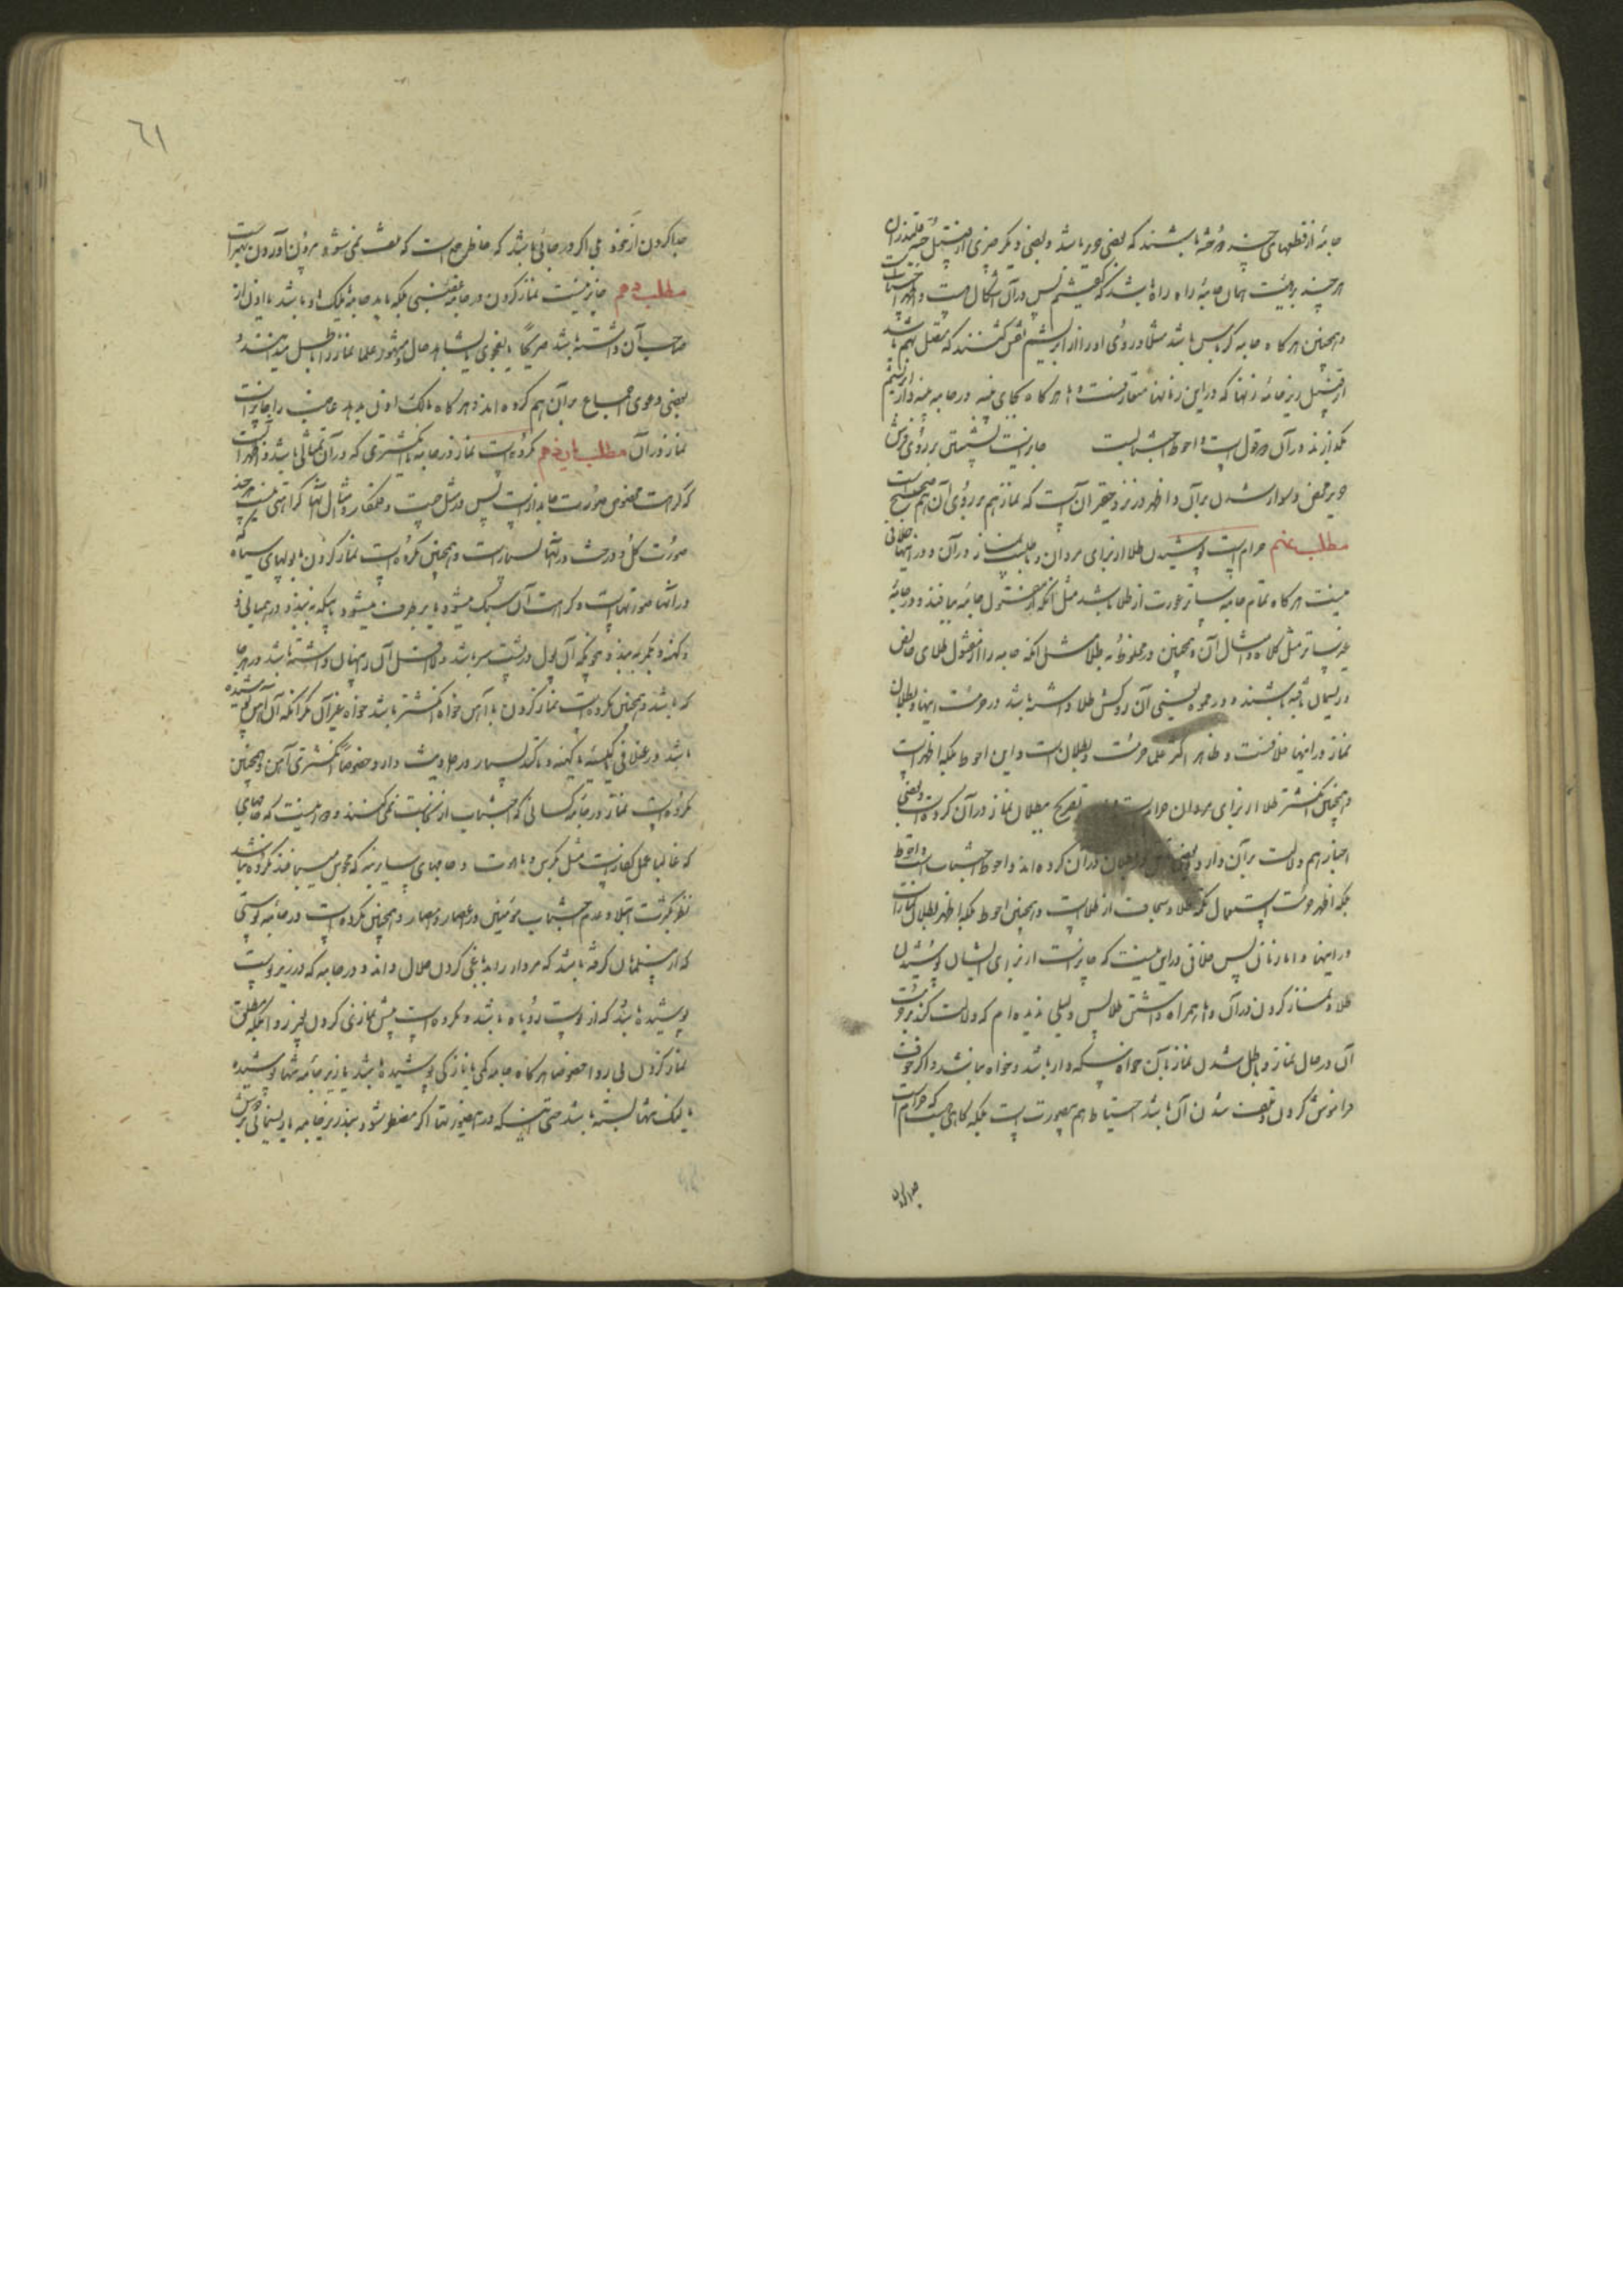 جامهٔ از قطعهای چند دوخته باشند که بعضی حریر باشد و بعضی دیگر چیزی از قبیل
هر چند بر هیئت همان جامهٔ راه راه باشد که گفتیم پس در آن اشکال است و
و همچنین هر گاه جامه کرباس باشد مثلا و روی او را از ابریشم نقش کنند که
از قبیل زیر جامهٔ زنها که در این زمانها متعارفست و اما هر گاه بجای پنبه در جامه پنبه دار ابریشم
بگذارند در آن دو قول است و احوط اجتناب است جایز است نشستن بر روی فرش
حریر محض و سوار شدن بر آن و اظهر در نزد حقیر آن است که نماز هم بر روی آن هم صحیح است
مطلب نهم حرام است پوشیدن طلا از برای مردان و باطل است نماز در آن و در اینها خلافی
نیست هر گاه تمام جامه ساتر عورت از طلا باشد مثل آنکه از مفتول جامه ببافند و در جامهٔ
غیر ساتر مثل کلاه و امثال آن و همچنین در مخلوط به طلا مثل آنکه جامه را از مفتول طلای خالص
و ریسمان بافته باشند و در مموه یعنی آن روکش طلا داشته باشد در حرمت اینها و بطلان
نماز در اینها خلافست و ظاهر اکثر علما حرمت و بطلان است و این احوط بلکه اظهر است
و همچنین انگشتر طلا از برای مردان حرام است تصریح ببطلان نماز در آن کرده‌اند و بعضی
اخبار هم دلالت بر آن دارد و در آن کرده‌اند و احوط اجتناب است و احوط
بلکه اظهر حرمت استعمال تکمه طلا و سجافت از طلا است و همچنین احوط بلکه اظهر بطلان نماز است
در اینها و اما زنان پس خلافی در این نیست که جایز است از برای ایشان پوشیدن
طلا و نماز کردن در آن و اما همراه داشتن طلا پس دلیلی ندیده‌ام که دلالت کند بر حرمت
آن در حال نماز و باطل شدن نماز بآن خواه سکه دار باشد و خواه نباشد و اگر خوف
فراموش کردن و تلف شدن آن باشد احتیاط هم بیصورت است بلکه گاهی هست که حرام است
جدا کردن
٦١
جدا کردن از خود بلی اگر در جائی باشد که خاطر جمع است که تلف نمی‌شود بیرون آوردن بهتر است
مطلب دهم جایز نیست نماز کردن در جامه غصبی بلکه باید جامه ملک او باشد یا اذن از
صاحب آن داشته باشد صریحا یا بفحوی یا بشاهد حال و مشهور علما نماز را باطل میدانند و
بعضی دعوی اجماع بر آن هم کرده‌اند و هر گاه مالک اذن بدهد غاصب را جایز است
نماز در آن مطلب یازدهم مکروه است نماز در جامه یا انگشتری که در آن تمثالی باشد و اظهر آن است
که کراهت مخصوص صورت جاندار است پس در مثل چیت و قلمکار و امثال آنها کراهتی نیست هر چند
صورت گل و درخت در آنها بسیار است و همچنین مکروه است نماز کردن با پولهای سیاه که
در آنها صورتهاست و کراهت آن سبک میشود یا بر طرف میشود باینکه به بندد در همیانی و
و کهنه و بکمر به بندد بنحویکه آن پول در پشت سر باشد و لا اقل آن را پنهان داشته باشد در هر جا
که باشد و همچنین مکروه است نماز کردن با آهن خواه انگشتر باشد خواه غیر آن مگر آنکه آن آهن پوشیده
باشد در غلافی یا کیسه یا کهنه و تاکید بسیار در احادیث دارد خصوصا انگشتری آهن و همچنین
مکروه است نماز در جامه کسانی که اجتناب از نجاست نمی‌کنند و دور نیست که جامهای
که غالبا عمل کفار است مثل کرپس و ماهوت و جامهای ساریه که مجوس میبافند مکروه نباشد
نظر بکثرت ابتلا و عدم اجتناب مؤمنین در اعصار و امصار و همچنین مکروه است در جامه پوستی
که از مسلمانان گرفته باشد که مردار را بدباغی کردن حلال داند و در جامه که در زیر پوست
پوشیده باشد که از پوست روباه باشد و مکروه است پیش نمازی کردن بغیر ردا بلکه مطلق
نماز کردن بی ردا خصوصا هر گاه جامه کمی یا نازکی پوشیده باشد یا زیر جامه تنها پوشیده
یا لنگ تنها بسته باشد حتی اینکه در اینصورتها اگر مضطر شود بند زیر جامه یا ریسمانی بر دوش